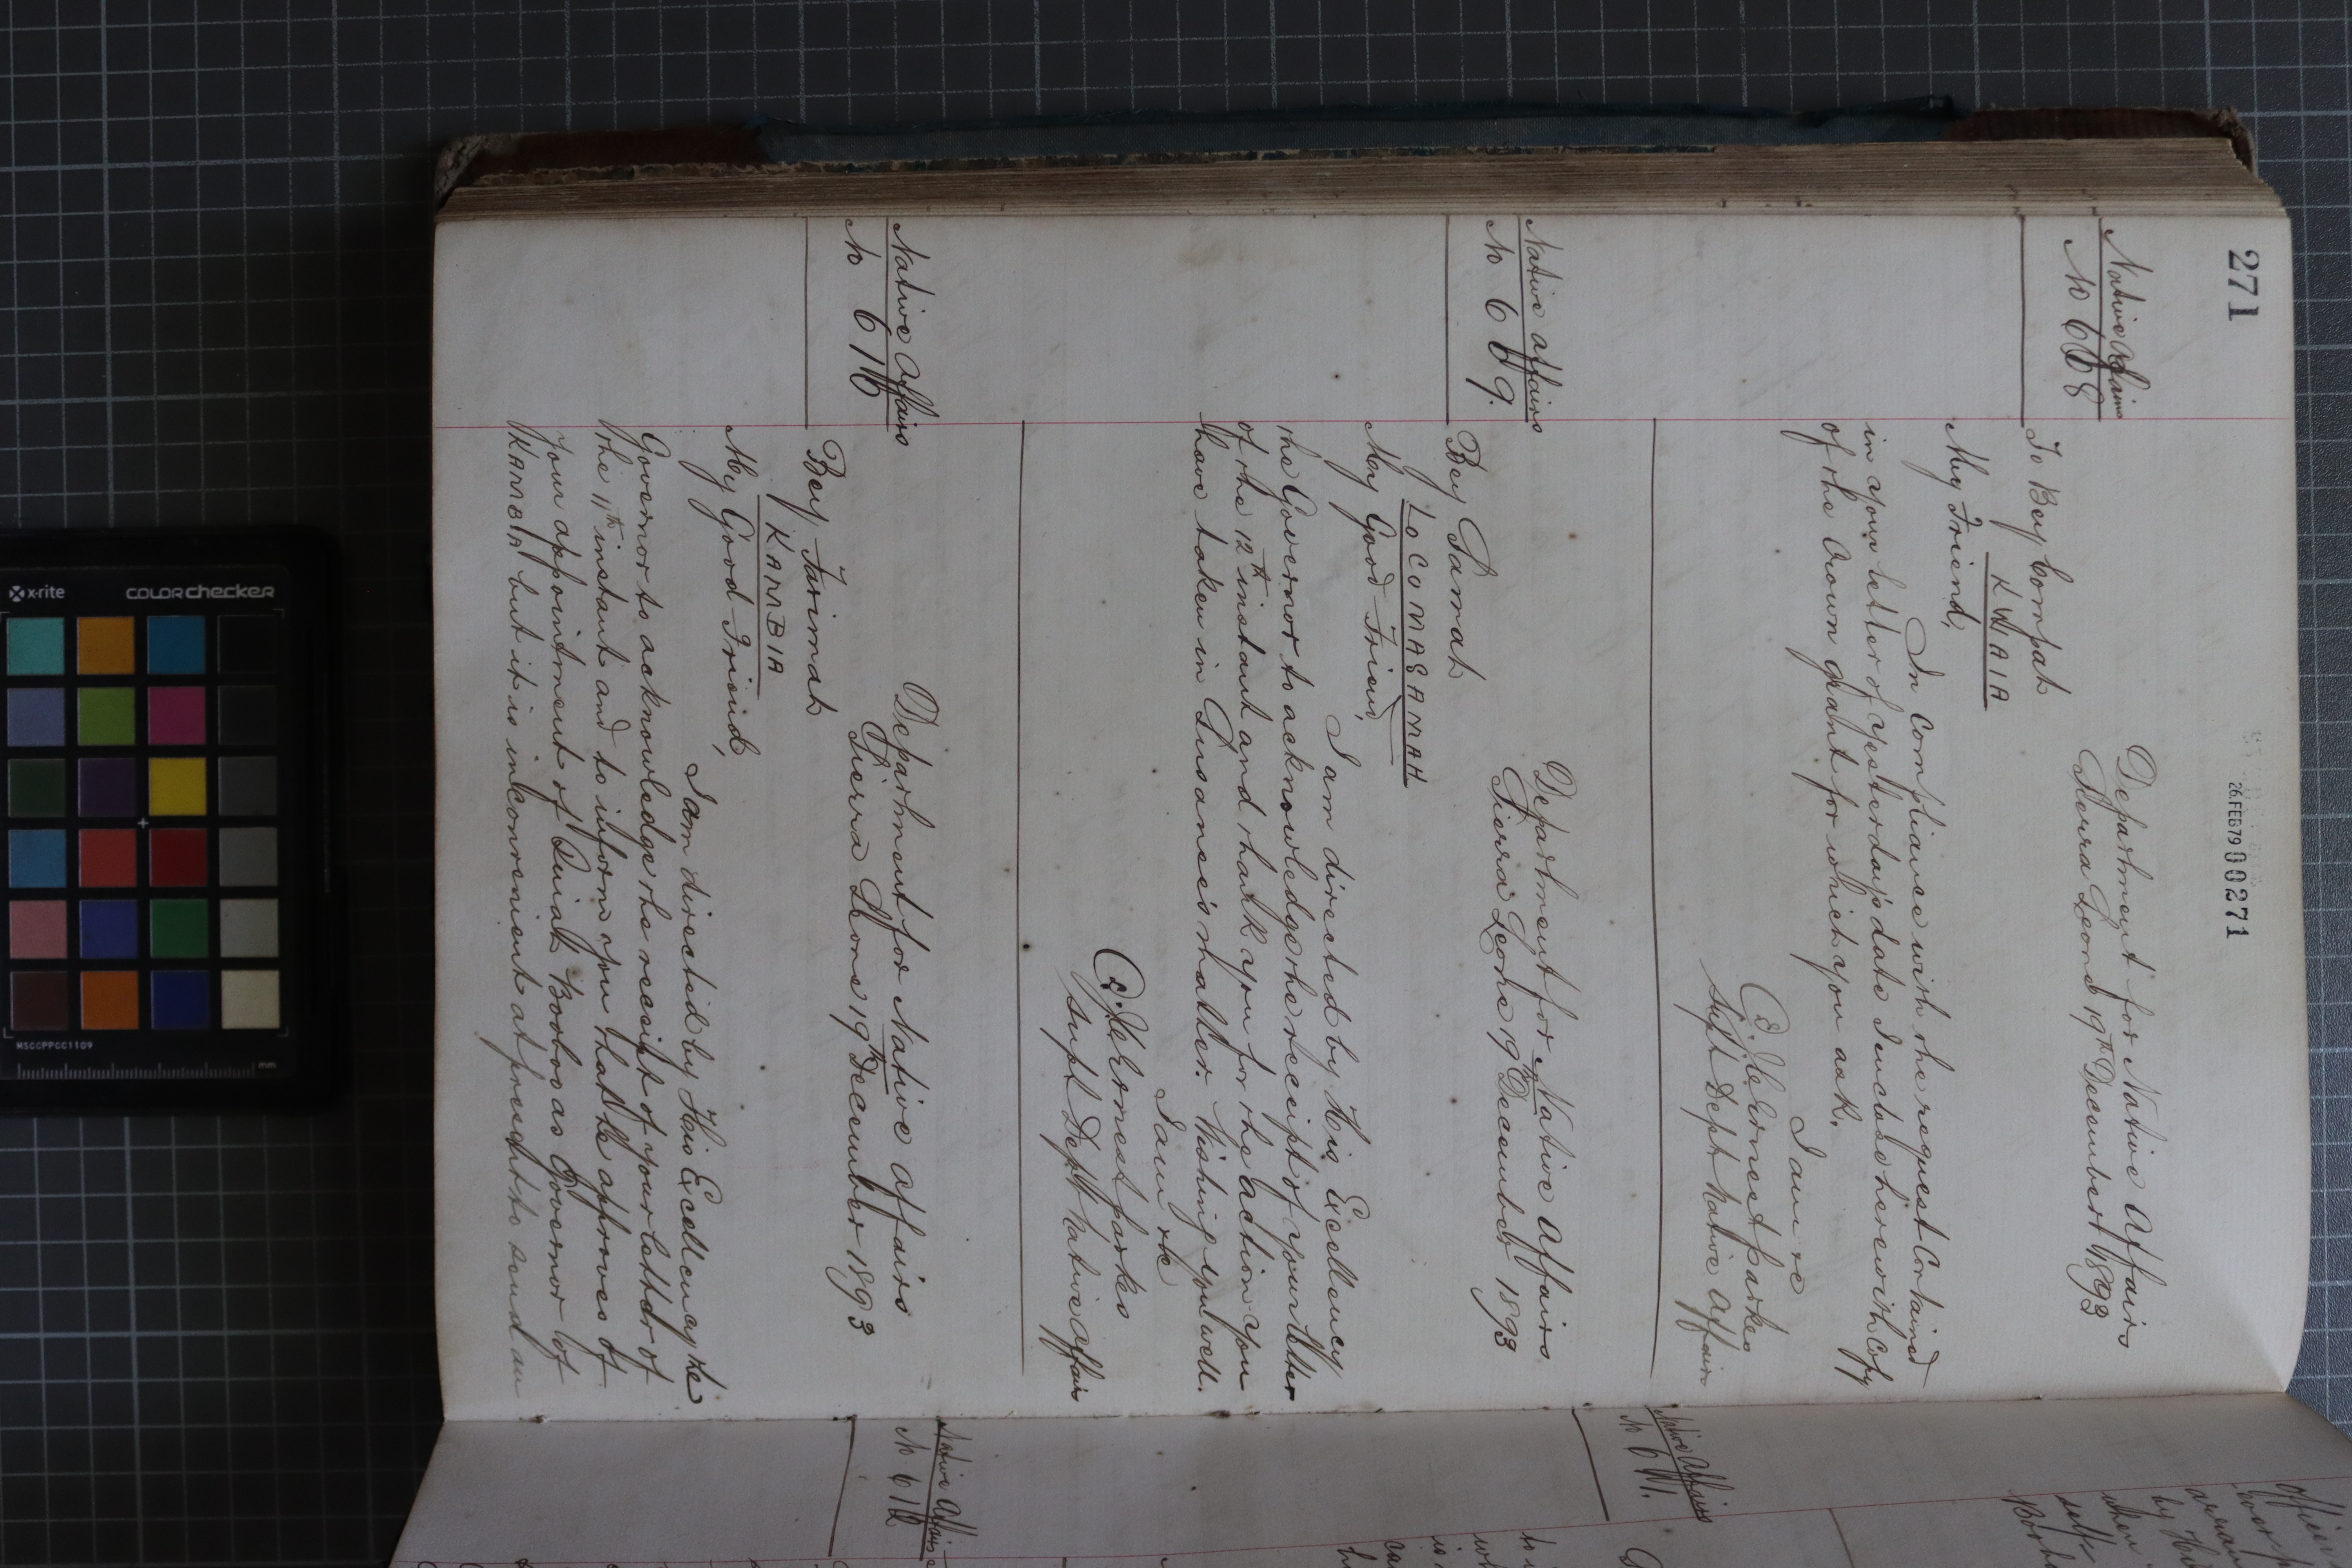 271
26 FEB 79 00271
Native Affairs
No 608
Department for Native Affairs
Sierra Leone 19th December 1893
To Bey Compah
KWAIA
My Friend,
In Compliance with the request Contained
in your letter of yesterday's date I enclose herewith Copy
of the Crown grant for which you ask.
I am &c
J. C. Ernest Parkes
Supt Dept Native Affairs
Native Affairs
No 609.
Department for Native Affairs
Sierra Leone 19th December 1893
Bey Samah
LOCOMASAMAH
My Good Friend,
I am directed by His Excellency
the Governor to acknowledge the receipt of your letter
of the 12th instant and thank you for the action you
have taken in matter. Wishing you well.
I am &c
J. C. Ernest Parkes
Supt Dept Native Affairs
Native Affairs
No 610
Department for Native Affairs
Sierra Leone 19th December 1893
Bey Farimah
KAMBIA
My Good Friend,
I am directed by His Excellency the
Governor to acknowledge the receipt of your letter of
the 11th instant and to inform you that he approves of
your appointment of Quiah Booboo as Governor of
KAMBIA but it is inconvenient at present to send an
Native Affairs
No 611.
Native Affairs
No 612